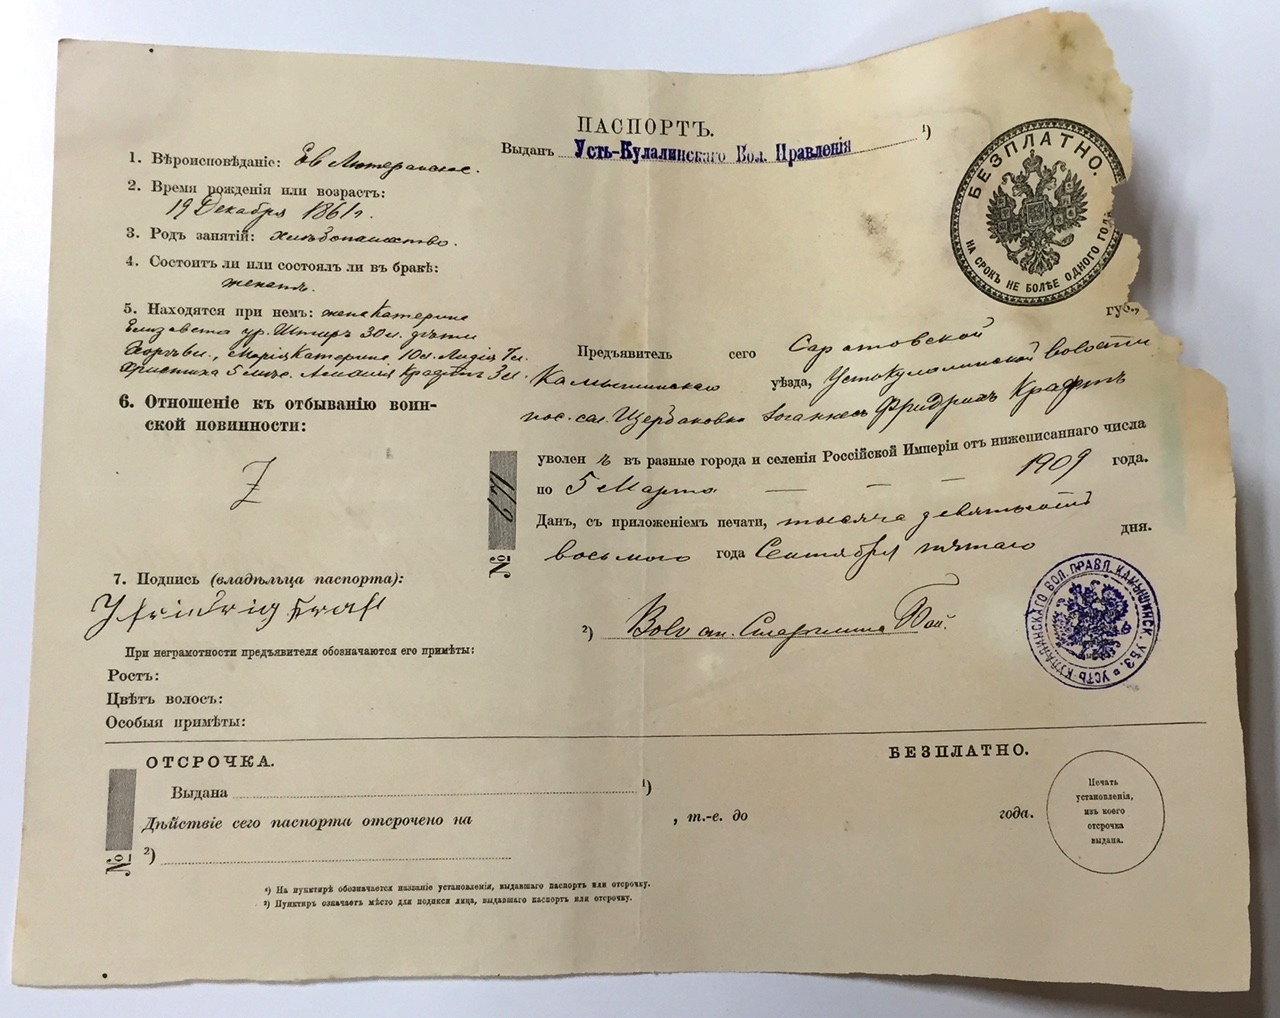 ПАСПОРТЪ.
Выданъ Усть-Кулалинскаго Вол. Правленія ¹)
БЕЗПЛАТНО.
НА СРОКЪ НЕ БОЛѢЕ ОДНОГО ГОДА
1. Вѣроисповѣданіе: Ев Лютеранское.
2. Время рожденія или возрастъ:
19 Декабря 1861 г.
3. Родъ занятій: хлѣбопашество.
4. Состоитъ ли или состоялъ ли въ бракѣ:
женатъ.
5. Находятся при немъ: жена Катерина
Елизавета ур. Штиръ 30 л. дѣти
Марія Катерина 10 л. Лидія 7 л.
5 Амалія Крафтъ 3 л.
6. Отношеніе къ отбыванію воин-
ской повинности:
7. Подпись (владѣльца паспорта):
Fridrig Kraft
При неграмотности предъявителя обозначаются его примѣты:
Ростъ:
Цвѣтъ волосъ:
Особыя примѣты:
губ.,
Предъявитель сего Саратовской
Камышинскаго уѣзда, Устокулалинской волости
пос. сел. Щербаковки Іоганнесъ Фридрихъ Крафтъ
уволенъ въ разные города и селенія Россійской Имперіи отъ нижеписаннаго числа
по 5 Марта — — — 1909 года.
Данъ, съ приложеніемъ печати, тысяча девятьсотъ
восьмого года Сентября пятаго дня.
№ 677
²) Волостн. Старшина
УСТЬ КУЛАЛИНСКАГО ВОЛ. ПРАВЛ. КАМЫШИНСК. УѢЗ.
ОТСРОЧКА.
БЕЗПЛАТНО.
Выдана ¹)
Дѣйствіе сего паспорта отсрочено на , т.-е. до года.
№
²)
Печать
установленія,
изъ коего
отсрочка
выдана.
¹) На пунктирѣ обозначается названіе установленія, выдавшаго паспортъ или отсрочку.
²) Пунктиръ означаетъ мѣсто для подписи лица, выдавшаго паспортъ или отсрочку.